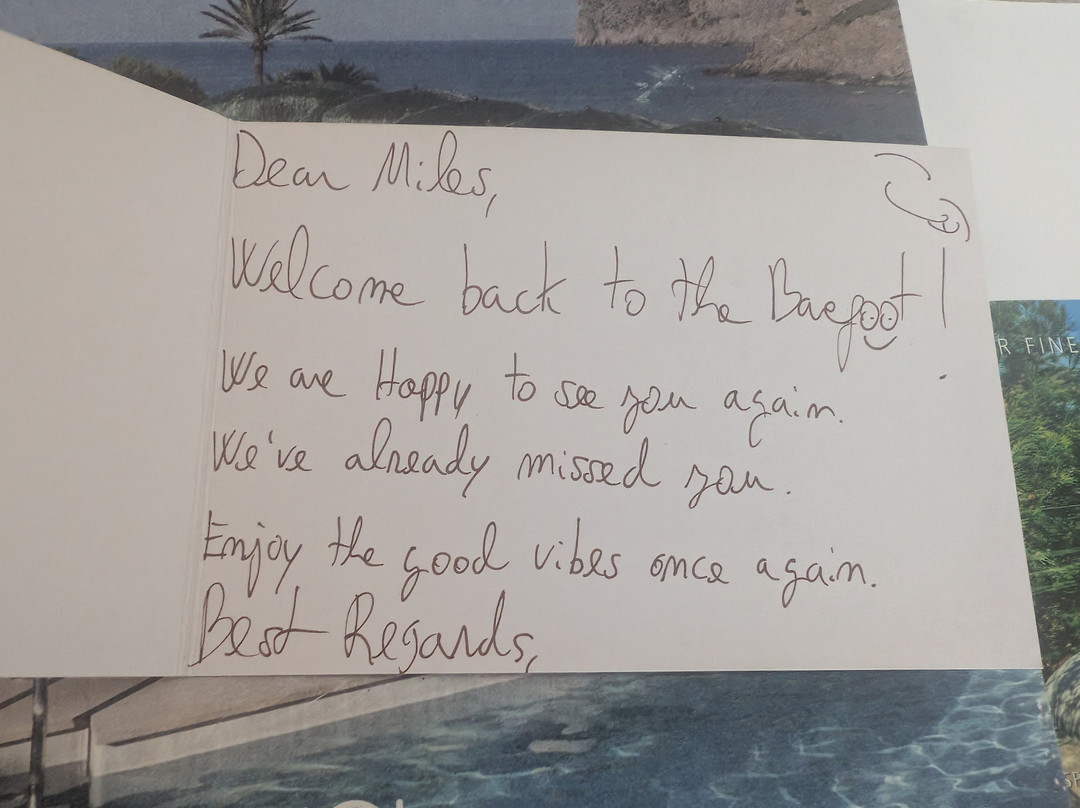 Dear Miles,
Welcome back to the Baefoot!
We are Happy to see you again.
We've already missed you.
Enjoy the good vibes once again.
Best Regards,
R FINE